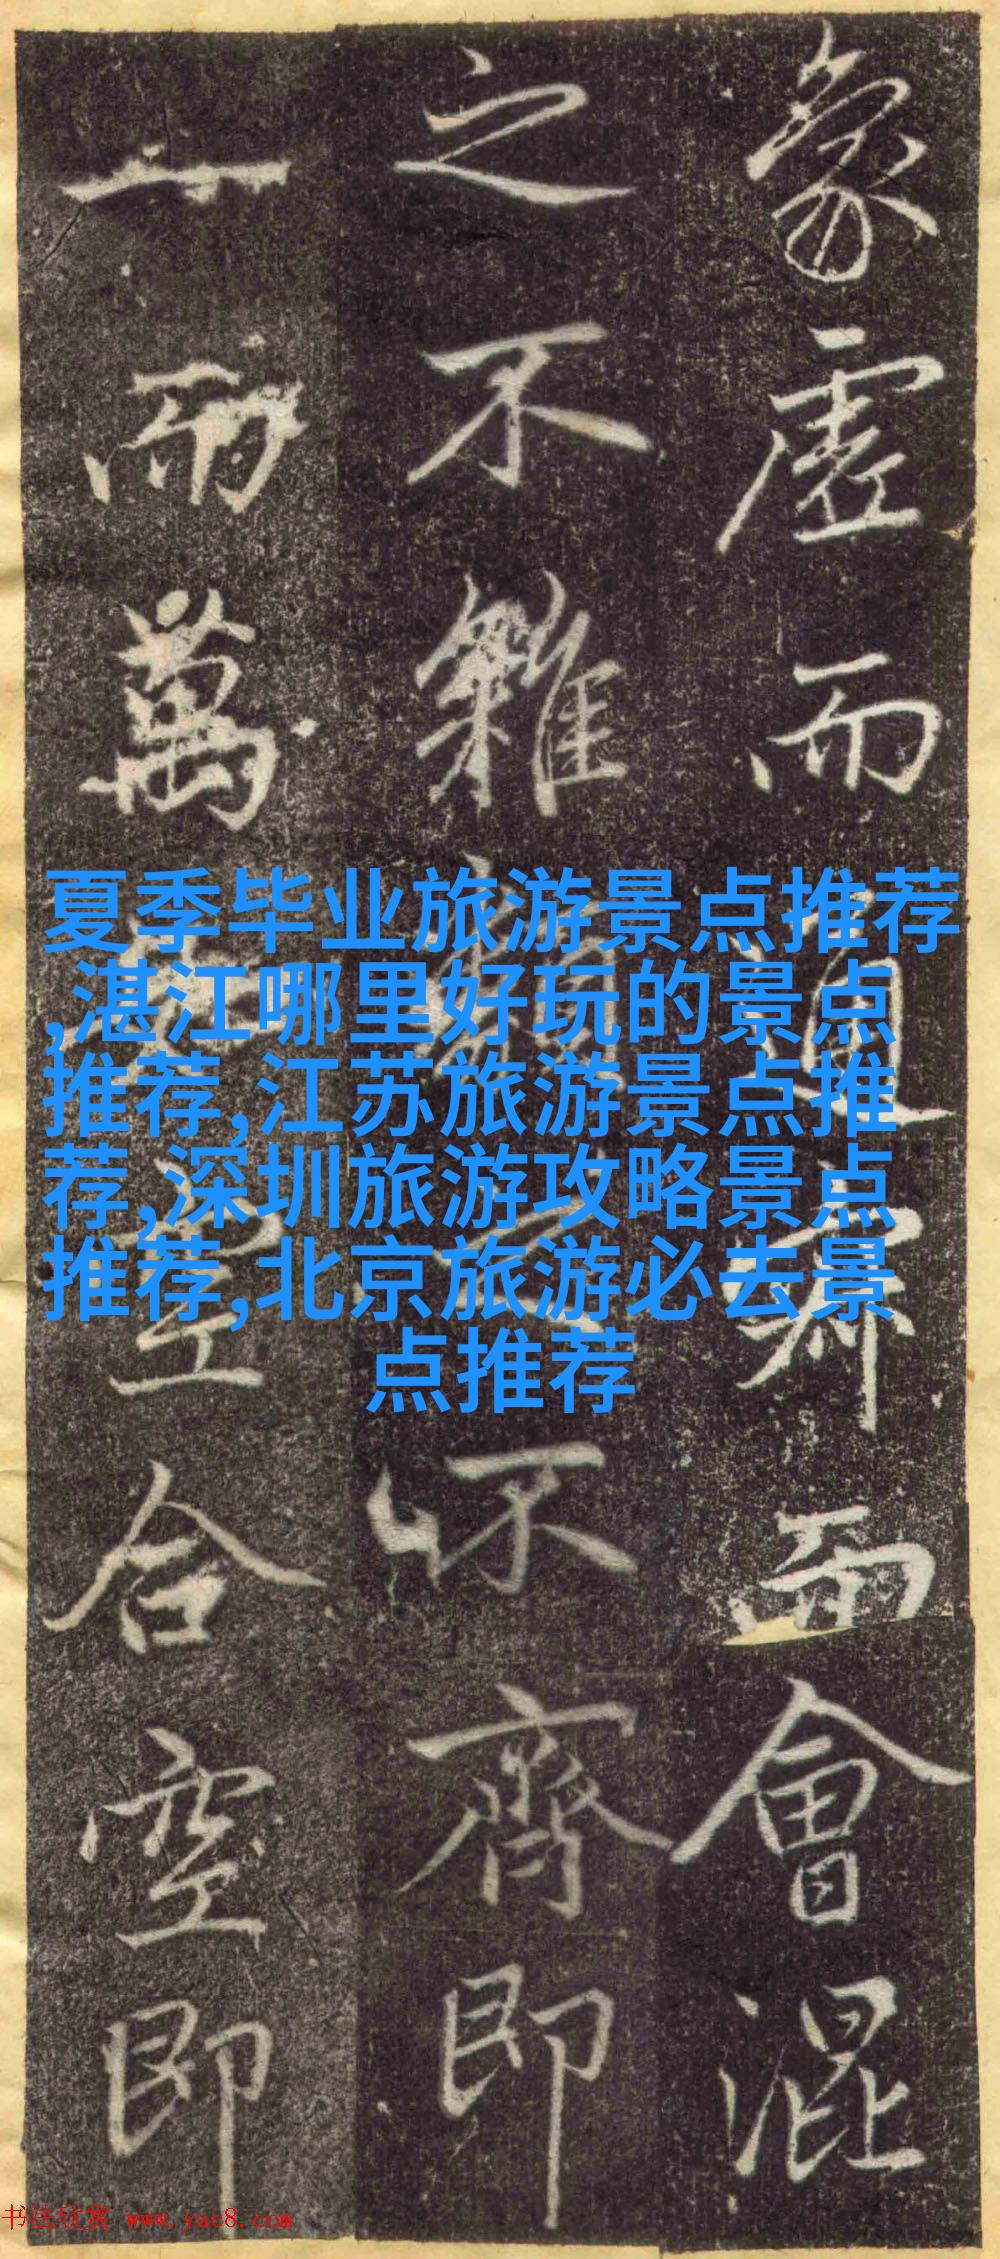 象虛而通而會混
之不雜類不齊即
一而萬空合空即
夏季毕业旅游景点推荐
,湛江哪里好玩的景点
推荐,江苏旅游景点推
荐,深圳旅游攻略景点
推荐,北京旅游必去景
点推荐
书法欣赏 www.yac8.com